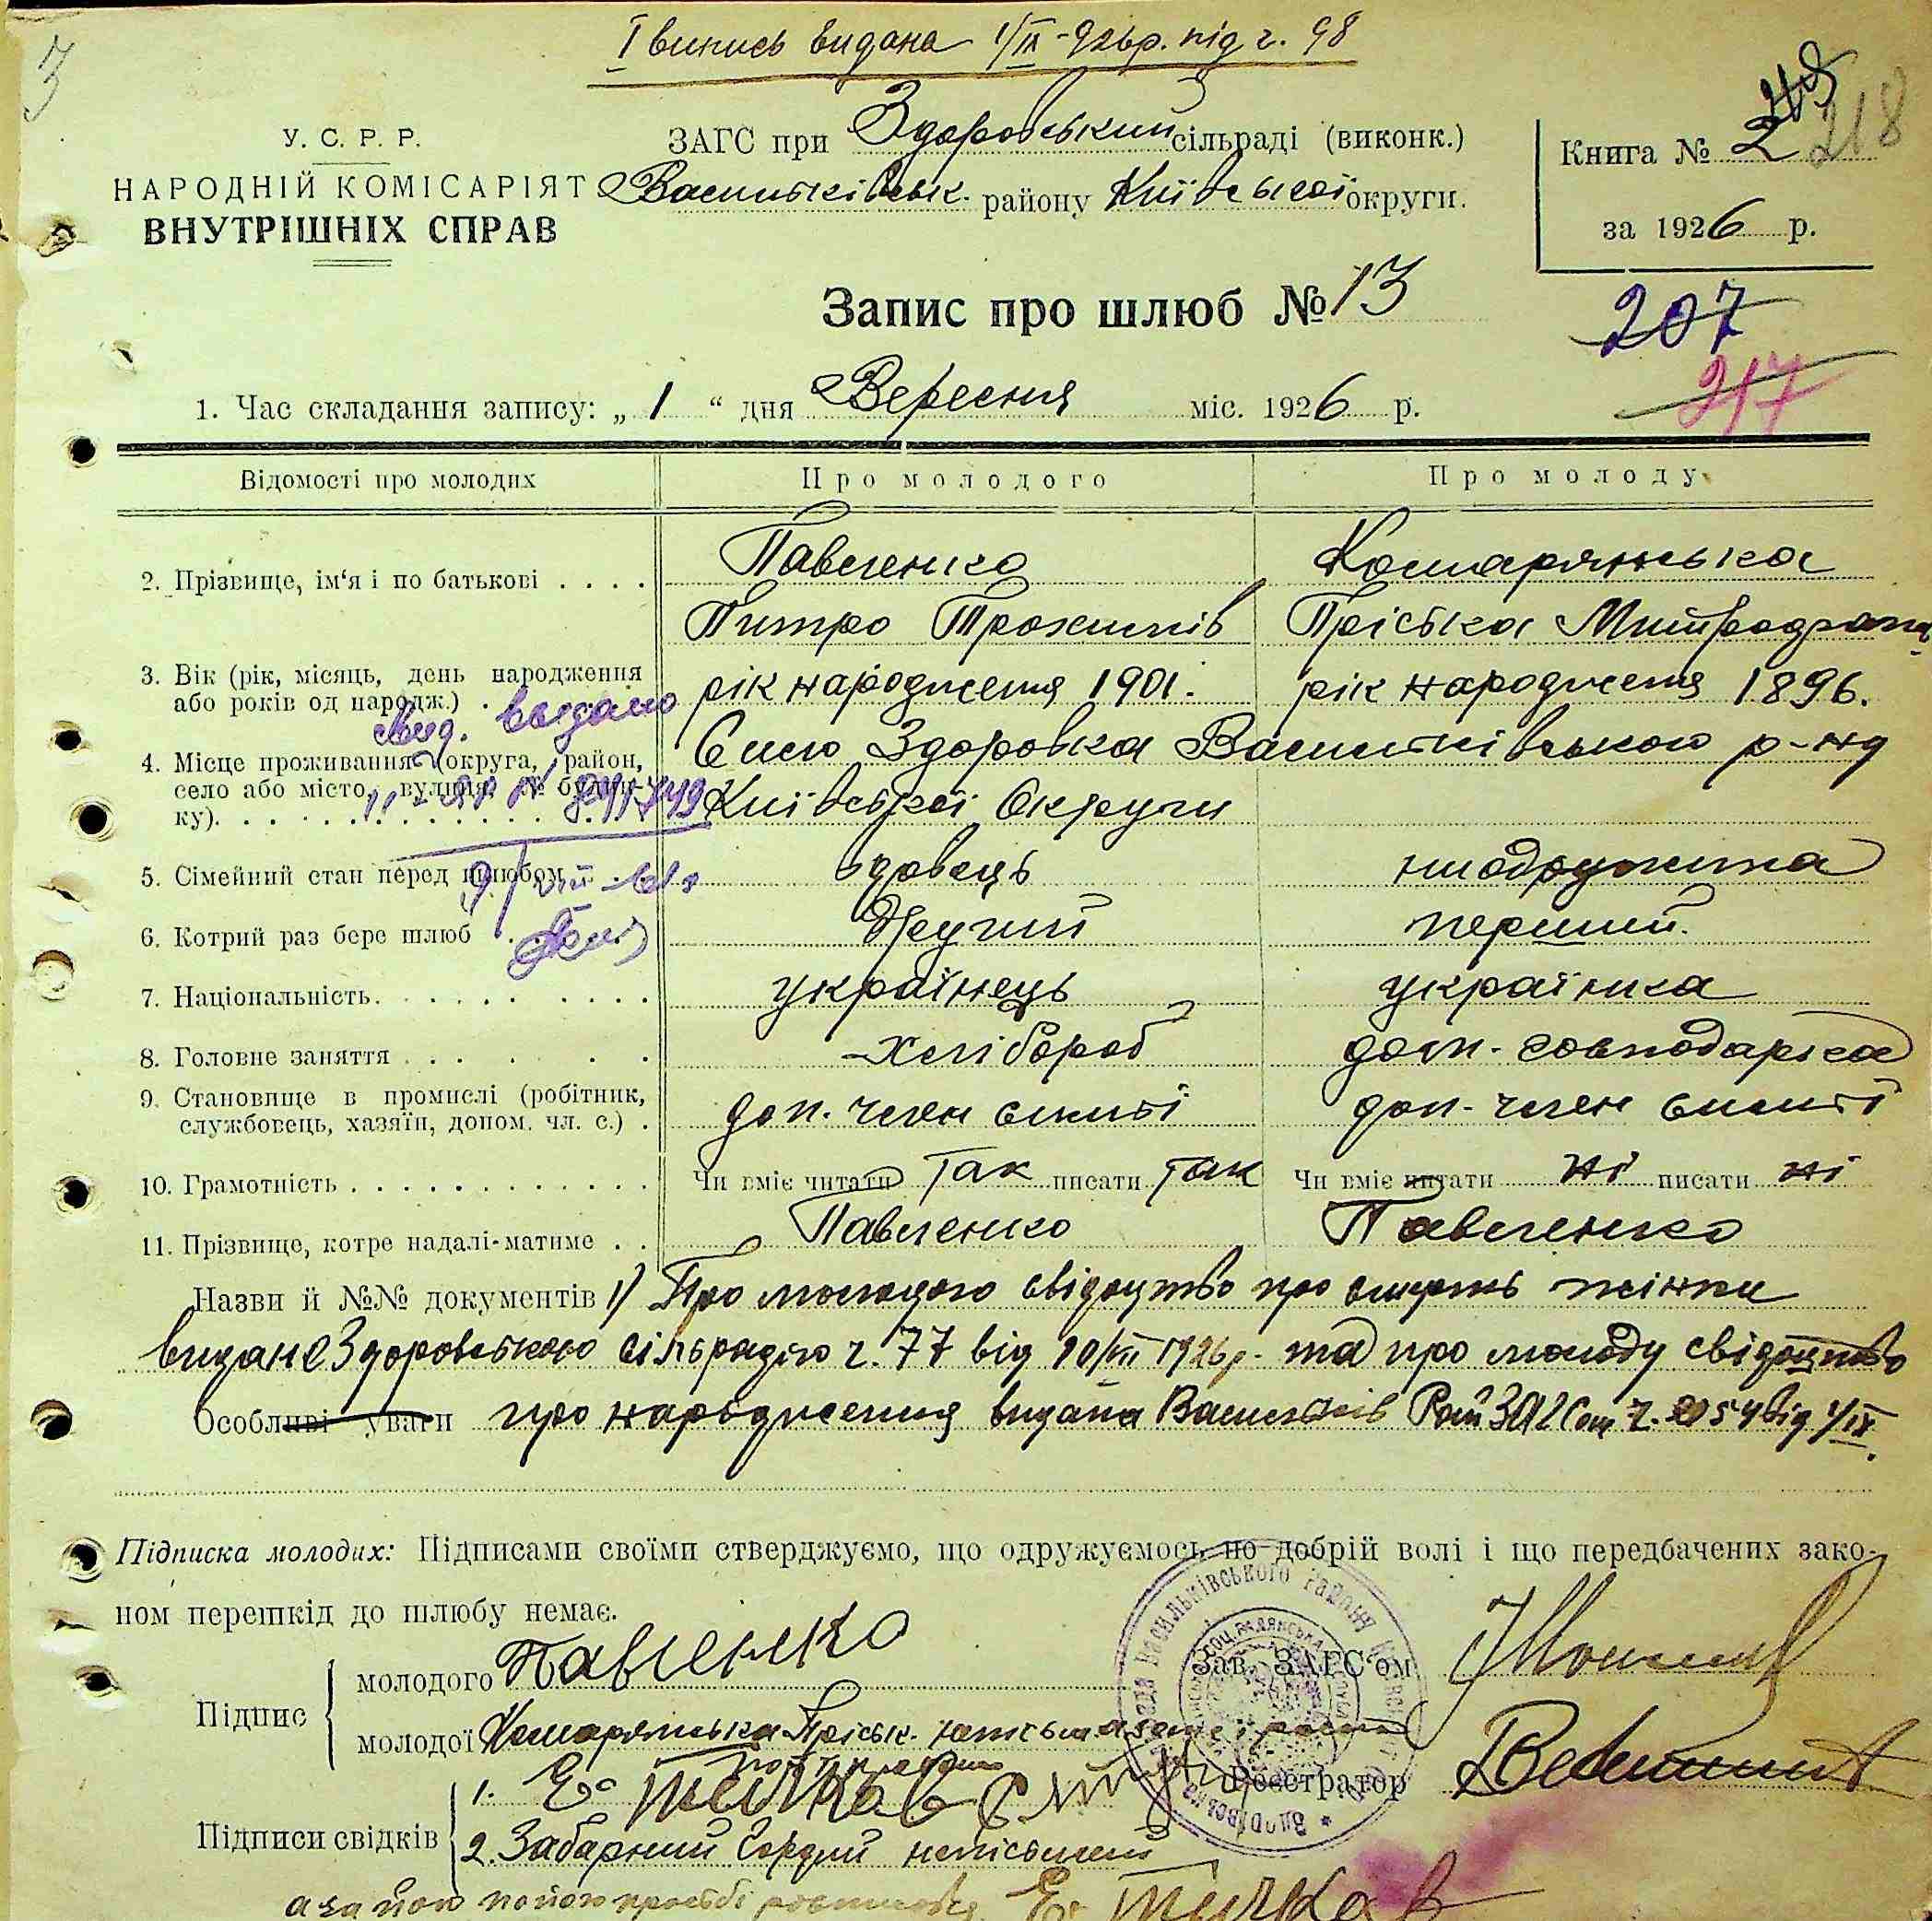 І випись видана 1/IX-926р. під ч. 98
У. С. Р. Р.
НАРОДНІЙ КОМІСАРІЯТ
ВНУТРІШНІХ СПРАВ
ЗАГС при Здоровський сільраді (виконк.)
Васильківськ. району Київської округи.
Книга № 2 218
за 1926 р.
Запис про шлюб № 13
207
217
1. Час складання запису: „ 1 “ дня Вересня міс. 1926 р.
Відомості про молодих Про молодого Про молоду
2. Прізвище, ім‘я і по батькові . . . . Павленко Комарянська
Питро Трохимів Пріська
3. Вік (рік, місяць, день народження
або років од народж.) . рік народження 1901. рік народження 1896.
видано
4. Місце проживання (округа, район,
село або місто, вулиця, № будин-
ку). Село Здоровка Васильківського р-ну
Київської Округи
5. Сімейний стан перед шлюбом вдовець
6. Котрий раз бере шлюб Другий перший.
7. Національність. українець українка
8. Головне заняття хлібороб дом. господарка
9. Становище в промислі (робітник,
службовець, хазяїн, допом. чл. с.) . доп. член симьї доп. член симьї
10. Грамотність Чи вміє читати Так писати Так Чи вміє читати ні писати ні
11. Прізвище, котре надалі-матиме . . Павленко Павленко
Назви й №№ документів 1) Про молодого свідоцтво про смерть жінки
видане Здоровською сільрадою ч. 77 від 10/VII 1926р. та про молоду свідоцтво
Особливі уваги про народження видана Васильків Рай ЗАГСом ч. 2054 від 1/IX.
Підписка молодих: Підписами своїми стверджуємо, що одружуємось по добрій волі і що передбачених зако-
ном перешкід до шлюбу немає.
Підпис
молодого Павленко
Зав. ЗАГС‘ом
молодої Комарянська Пріськ.
Реєстратор
Підписи свідків
1.
2. Забарний Гордій неписьмен
а за його